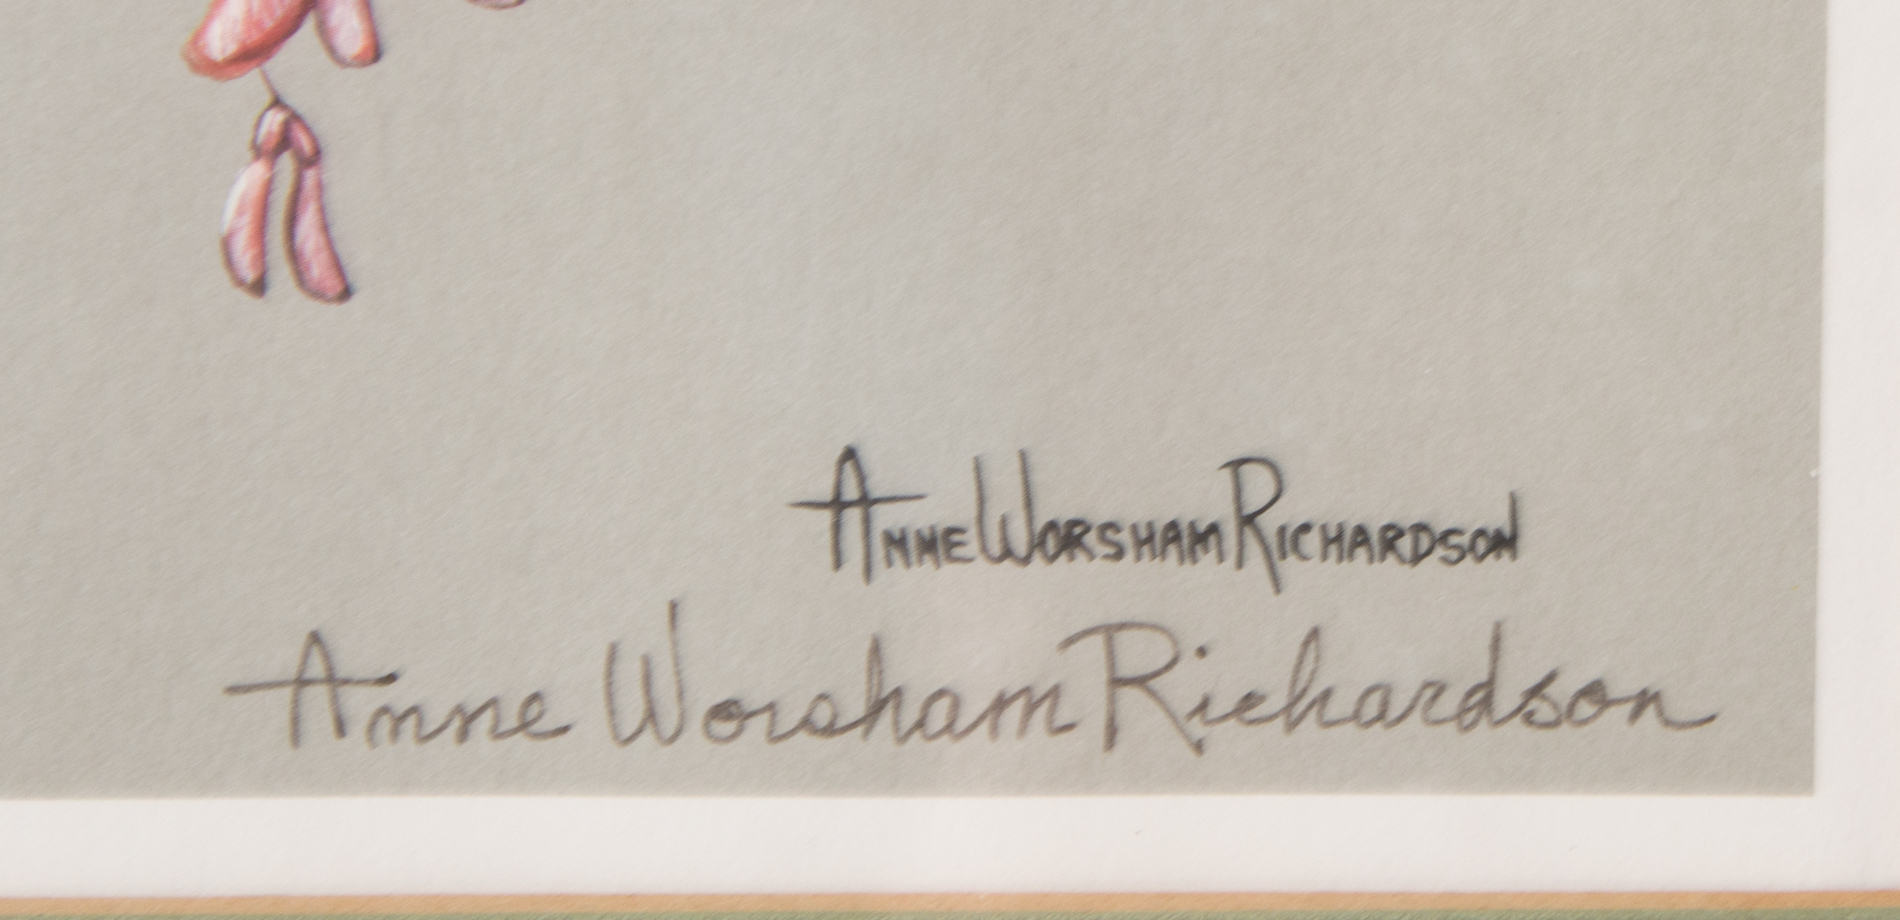 Anne Worsham Richardson
Anne Worsham Richardson